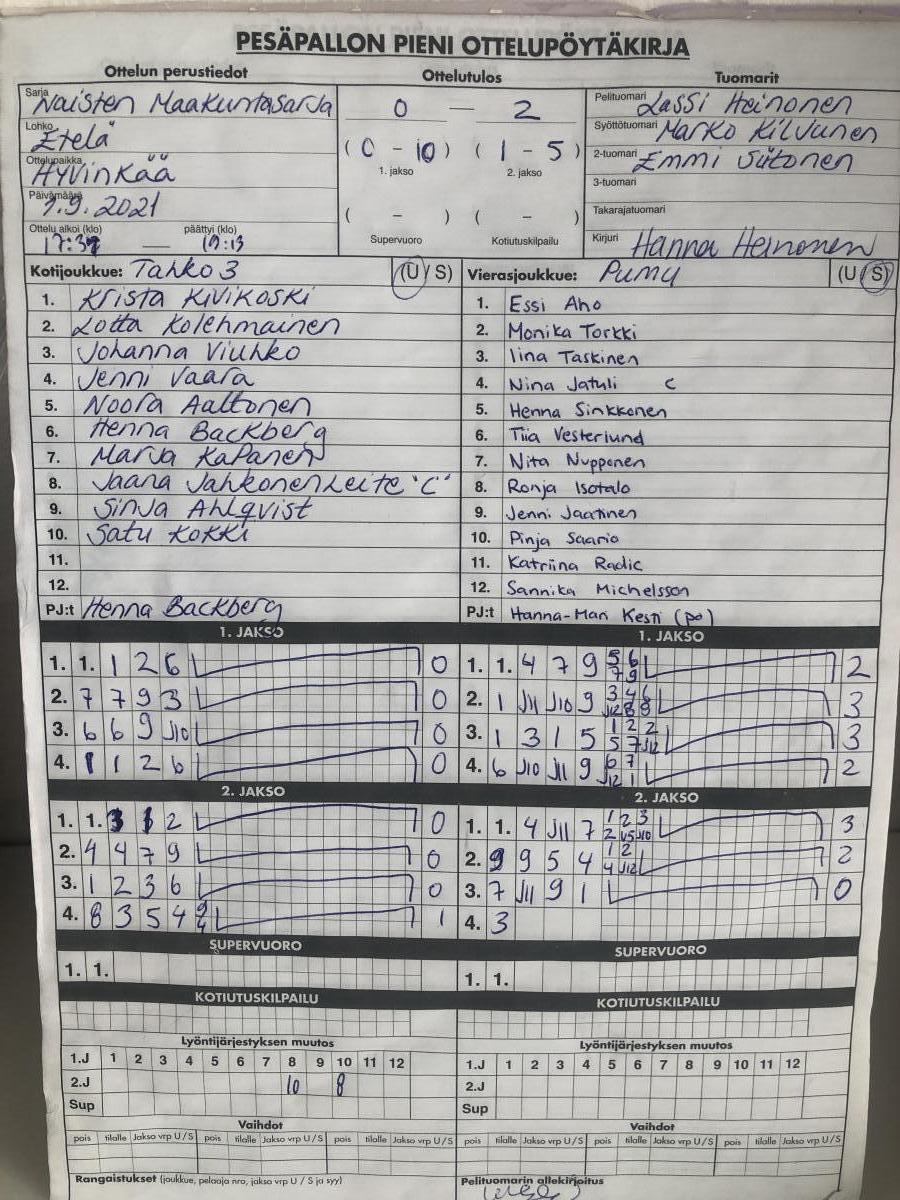 PESÄPALLON PIENI OTTELUPÖYTÄKIRJA
Ottelun perustiedot
Sarja Naisten Maakuntasarja
Lohko Etelä
Ottelupaikka Hyvinkää
Päivämäärä 7.9.2021
Ottelu alkoi (klo) päättyi (klo)
— 19:13
Ottelutulos
0 — 2
( 0 - 10 ) ( 1 - 5 )
1. jakso 2. jakso
( - ) ( - )
Supervuoro Kotiutuskilpailu
Tuomarit
Pelituomari Lassi Heinonen
Syöttötuomari Marko Kilvunen
2-tuomari Emmi Siitonen
3-tuomari
Takarajatuomari
Kirjuri Hanna Heinonen
Kotijoukkue: Tahko 3 (U/S)
1. Krista Kivikoski
2. Lotta Kolehmainen
3. Johanna Viuhko
4. Jenni Vaara
5. Noora Aaltonen
6. Henna Backberg
7. Marja Kapanen
8. Jaana Jahkonen Leite "C"
9. Sinja Ahlqvist
10. Satu Kokki
11.
12.
PJ:t Henna Backberg
Vierasjoukkue: Pumu (U/S)
1. Essi Aho
2. Monika Torkki
3. Iina Taskinen
4. Nina Jatuli C
5. Henna Sinkkonen
6. Tiia Vesterlund
7. Nita Nupponen
8. Ronja Isotalo
9. Jenni Jaatinen
10. Pinja Saario
11. Katriina Radic
12. Sannika Michelsson
PJ:t Hanna-Mari Kesti (po)
1. JAKSO
1. 1. 1 2 6 0
2. 7 7 9 3 0
3. 6 6 9 J10 0
4. 1 1 2 6 0
2. JAKSO
1. 1. 3 2 0
2. 4 4 7 9 0
3. 1 2 3 6 0
4. 8 3 5 4 1
SUPERVUORO
1. 1.
KOTIUTUSKILPAILU
Lyöntijärjestyksen muutos
1.J 1 2 3 4 5 6 7 8 9 10 11 12
2.J 10 8
Sup
Vaihdot
pois tilalle Jakso vrp U/S pois tilalle Jakso vrp U/S pois tilalle Jakso vrp U/S
Rangaistukset (joukkue, pelaaja nro, jakso vrp U / S ja syy)
1. JAKSO
1. 1. 4 7 9 5 6 7 9 2
2. 1 J11 J10 9 3 4 6 J12 8 8 3
3. 1 3 1 5 1 2 2 5 7 J12 3
4. 6 J10 J11 9 6 7 J12 1 2
2. JAKSO
1. 1. 4 J11 7 1 2 3 2 J10 3
2. 9 9 5 4 1 2 4 J12 2
3. 7 J11 9 1 0
4. 3
SUPERVUORO
1. 1.
KOTIUTUSKILPAILU
Lyöntijärjestyksen muutos
1.J 1 2 3 4 5 6 7 8 9 10 11 12
2.J
Sup
Vaihdot
pois tilalle Jakso vrp U/S pois tilalle Jakso vrp U/S pois tilalle Jakso vrp U/S
Pelituomarin allekirjoitus